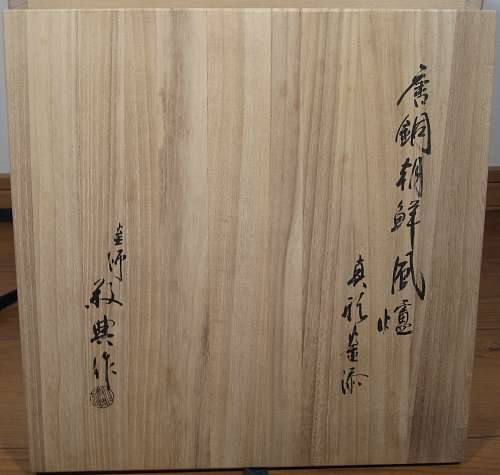 唐銅朝鮮風爐
真形釜添
釜師 敬典作